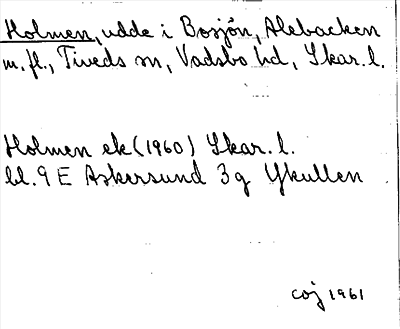 Holmen, udde i Bosjön, Alebacken
m. fl., Tiveds sn, Vadsbo hd, Skar. l.
Holmen ek (1960) Skar. l.
bl. 9 E Askersund 3 g Ykullen
coj 1961